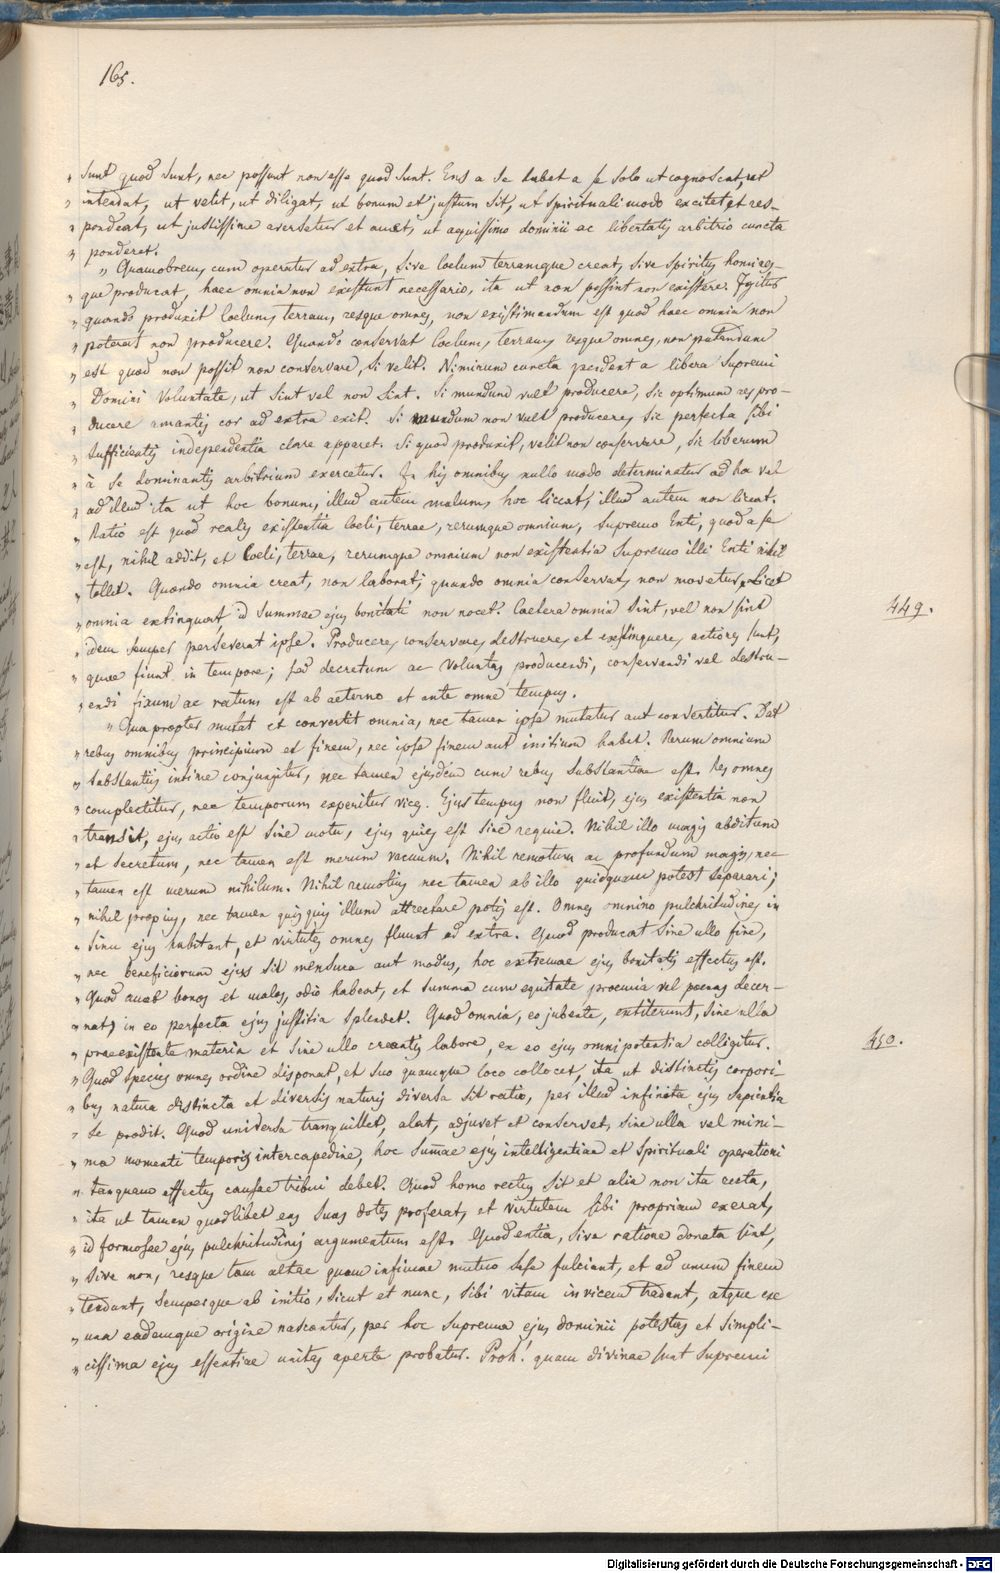 165.
„ sunt quod sunt, nec possunt non esse quod sunt. Ens a se habet a se solo ut cognoscat, ut
„ intendat, ut velit, ut diligat, ut bonum et justum sit, ut spirituali modo excitet et res-
„ pondeat, ut justissime aversetur et amet, ut aequissimo dominii ac libertatis arbitrio cuncta
„ ponderet.
„ Quamobrem, cum operatur ad extra, sive Coelum terramque creat, sive spiritus homines-
„ que producat, haec omnia non existunt necessario, ita ut non possint non existere. Igitur
„ quando produxit Coelum, terram, resque omnes, non existimandum est quod haec omnia non
„ poterat non producere. Quando conservat Coelum, terram, resque omnes, non putandum
„ est quod non possit non conservare, si velit. Nimirum cuncta pendent a libera Supremi
„ Domini Voluntate, ut sint vel non sint. Si mundum vult producere, sic optimum res pro-
„ ducere amantis cor ad extra exit. Si mundum non vult producere, sic perfecta sibi
„ sufficientis independentia clare apparet. Si quod produxit, velit non conservare, sic liberum
„ à se dominantis arbitrium exercetur. In his omnibus nullo modo determinatur ad hoc vel
„ ad illud ita ut hoc bonum, illud autem malum, hoc liceat, illud autem non liceat.
„ Ratio est quod realis existentia Coeli, terrae, rerumque omnium, Supremo Enti, quod a se
„ est, nihil addit, et Coeli, terrae, rerumque omnium non existentia Supremo illi Enti nihil
„ tollit. Quando omnia creat, non laborat; quando omnia conservat, non movetur. Licet
„ omnia extinguat id summae ejus bonitati non nocet. Caetera omnia sint, vel non sint 449.
„ idem semper perseverat ipse. Producere, conservare, destruere, et extinguere, actiones sunt,
„ quae fiunt in tempore; sed decretum ac Voluntas producendi, conservandi vel destru-
„ endi fixum ac ratum est ab aeterno et ante omne tempus.
„ Quapropter mutat et convertit omnia, nec tamen ipse mutatur aut convertitur. Dat
„ rebus omnibus principium et finem, nec ipse finem aut initium habet. Rerum omnium
„ substantiis intime conjungitur, nec tamen ejusdem cum rebus substantiae est. Res omnes
„ complectitur, nec temporum experitur vices. Ejus tempus non fluit, ejus existentia non
„ transit, ejus actio est sine motu, ejus quies est sine requie. Nihil illo magis abditum
„ et secretum, nec tamen est merum vacuum. Nihil remotum ac profundum magis, nec
„ tamen est merum nihilum. Nihil remotius nec tamen ab illo quidquam potest separari;
„ nihil propius, nec tamen quisquis illum attrectare potis est. Omnes omnino pulchritudines in
„ sinu ejus habitant, et virtutes omnes fluunt ad extra. Quod producat sine ullo fine,
„ nec beneficiorum ejus sit mensura aut modus, hoc extremae ejus bonitatis effectus est.
„ Quod amet bonos et malos, odio habeat, et summa cum equitate proemia vel poenas decer-
„ nat, in eo perfecta ejus justitia splendet. Quod omnia, eo jubente, extiterunt, sine ulla
„ praeexistente materia et sine ullo creantis labore, ex eo ejus omnipotentia colligitur. 450.
„ Quod species omnes ordine disponat, et suo quamque loco collocet, ita ut distinctis corpori-
„ bus natura distincta et diversis naturis diversa sit ratio, per illud infinita ejus sapientia
„ se prodit. Quod universa tranquillet, alat, adjuvet et conservet, sine ulla vel mini-
„ ma momenti temporis intercapedine, hoc summae ejus intelligentiae et spirituali operationi
„ tanquam effectus causae tribui debet. Quod homo rectus sit et alia non ita recta,
„ ita ut tamen quodlibet ens suas dotes proferat, et virtutem sibi propriam exerat,
„ id formosae ejus pulchritudinis argumentum est. Quod entia, sive ratione donata sint,
„ sive non, resque tam altae quam infimae mutuo sese fulciant, et ad unum finem
„ tendant, semperque ab initio, sicut et nunc, sibi vitam invicem tradant, atque ex
„ una eademque origine nascantur, per hoc suprema ejus dominii potestas et simpli-
„ cissima ejus essentiae unitas aperte probatur. Proh! quam divinae sunt Supremi
Digitalisierung gefördert durch die Deutsche Forschungsgemeinschaft - DFG